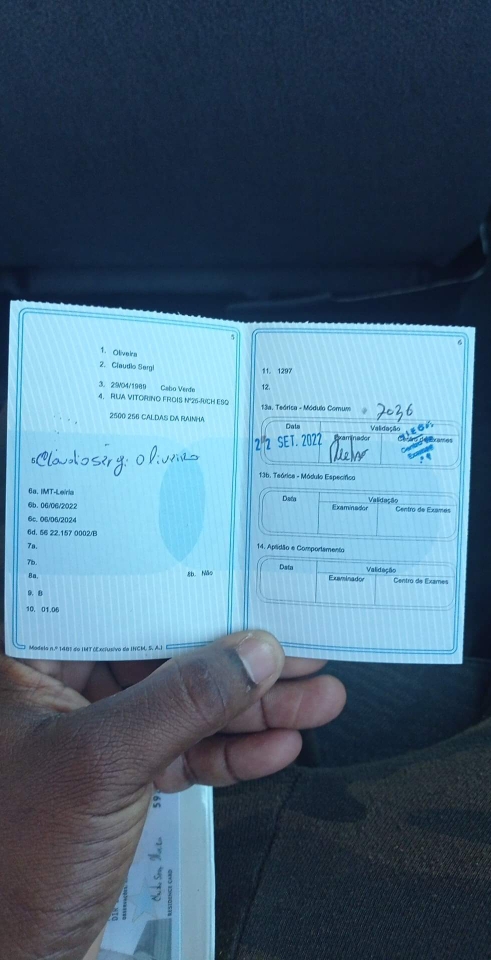 5
1. Oliveira
2. Claudio Sergi
3. 29/04/1989 Cabo Verde
4. RUA VITORINO FROIS Nº25-R/CH ESQ
2500 256 CALDAS DA RAINHA
5. Claudio Sergi Oliveira
6a. IMT-Leiria
6b. 06/06/2022
6c. 06/06/2024
6d. 56 22.157 0002/B
7a.
7b.
8a. 8b. Não
9. B
10. 01.06
Modelo n.º 1481 do IMT (Exclusivo da INCM, S. A.)
6
11. 1297
12.
13a. Teórica - Módulo Comum 7036
Data Validação
Examinador Centro de Exames
22 SET. 2022
13b. Teórica - Módulo Específico
Data Validação
Examinador Centro de Exames
14. Aptidão e Comportamento
Data Validação
Examinador Centro de Exames
RESIDENCE CARD